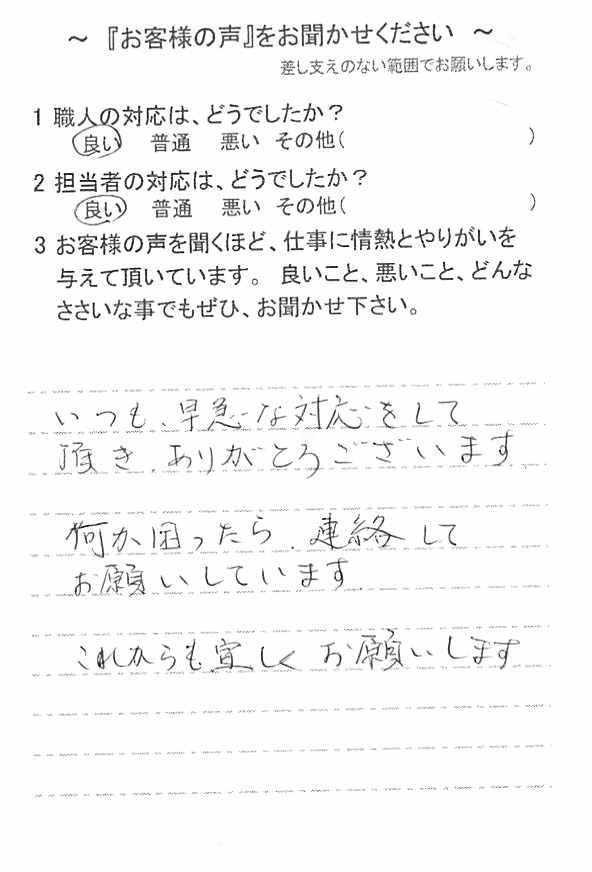 ～ 『お客様の声』をお聞かせください ～
差し支えのない範囲でお願いします。
1 職人の対応は、どうでしたか？
良い 普通 悪い その他( )
2 担当者の対応は、どうでしたか？
良い 普通 悪い その他( )
3 お客様の声を聞くほど、仕事に情熱とやりがいを
与えて頂いています。 良いこと、悪いこと、どんな
ささいな事でもぜひ、お聞かせ下さい。
いつも、早急な対応をして
頂き、ありがとうございます
何か困ったら、連絡して
お願いしています
これからも宜しく お願いします